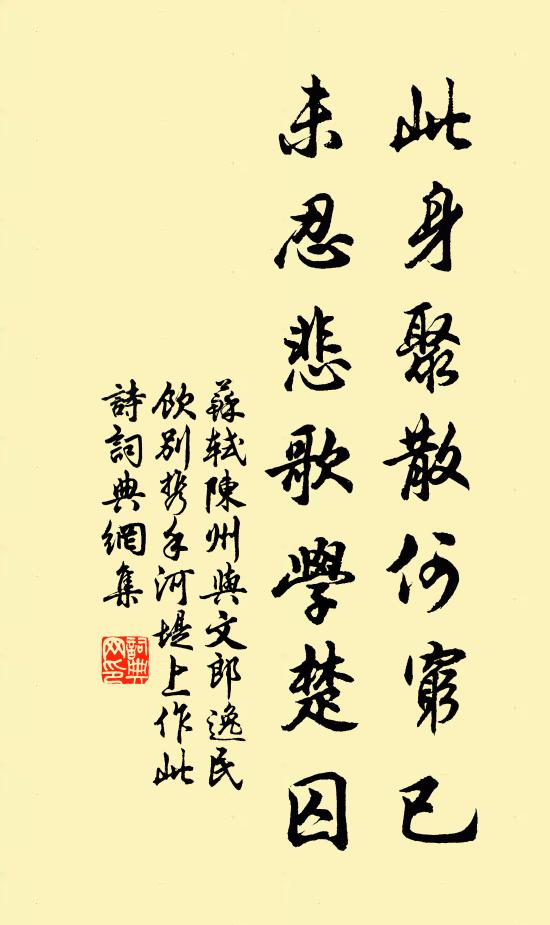 此身聚散何窮已
未忍悲歌學楚囚
蘇軾陳州與文郎逸民
飲別攜手河堤上作此
詩詞典網集
詞典
网印